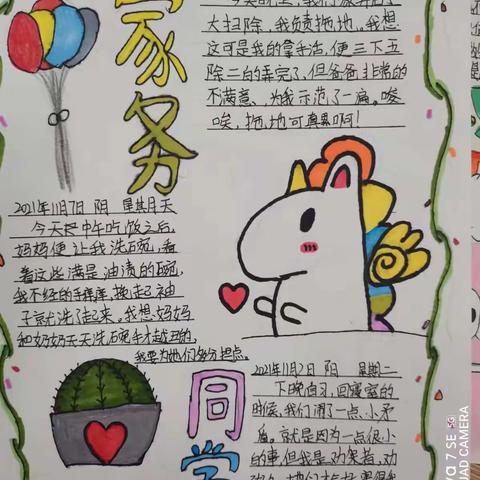 家务
大扫除,我负责拖地。我想
这可是我的拿手活,便三下五
除二白的弄完了,但爸爸非常的
不满意、为我示范了一痛。唉
唉,拖地可真累啊!
2021年11月7日 阴 星期天
今天中午吃饭之后,
妈妈便让我洗碗,看
着这些满是油渍的碗,
子就洗了起来。我想妈妈
和奶奶天天洗碗手才
我要为她们多分担点。
同学
2021年11月2日 阳 星期二
下晚自习,回寝室的
时候,我们闹了一点小矛
盾。就是因为一点很小
的事,但我是劝架者,劝
QUAD CAMERA